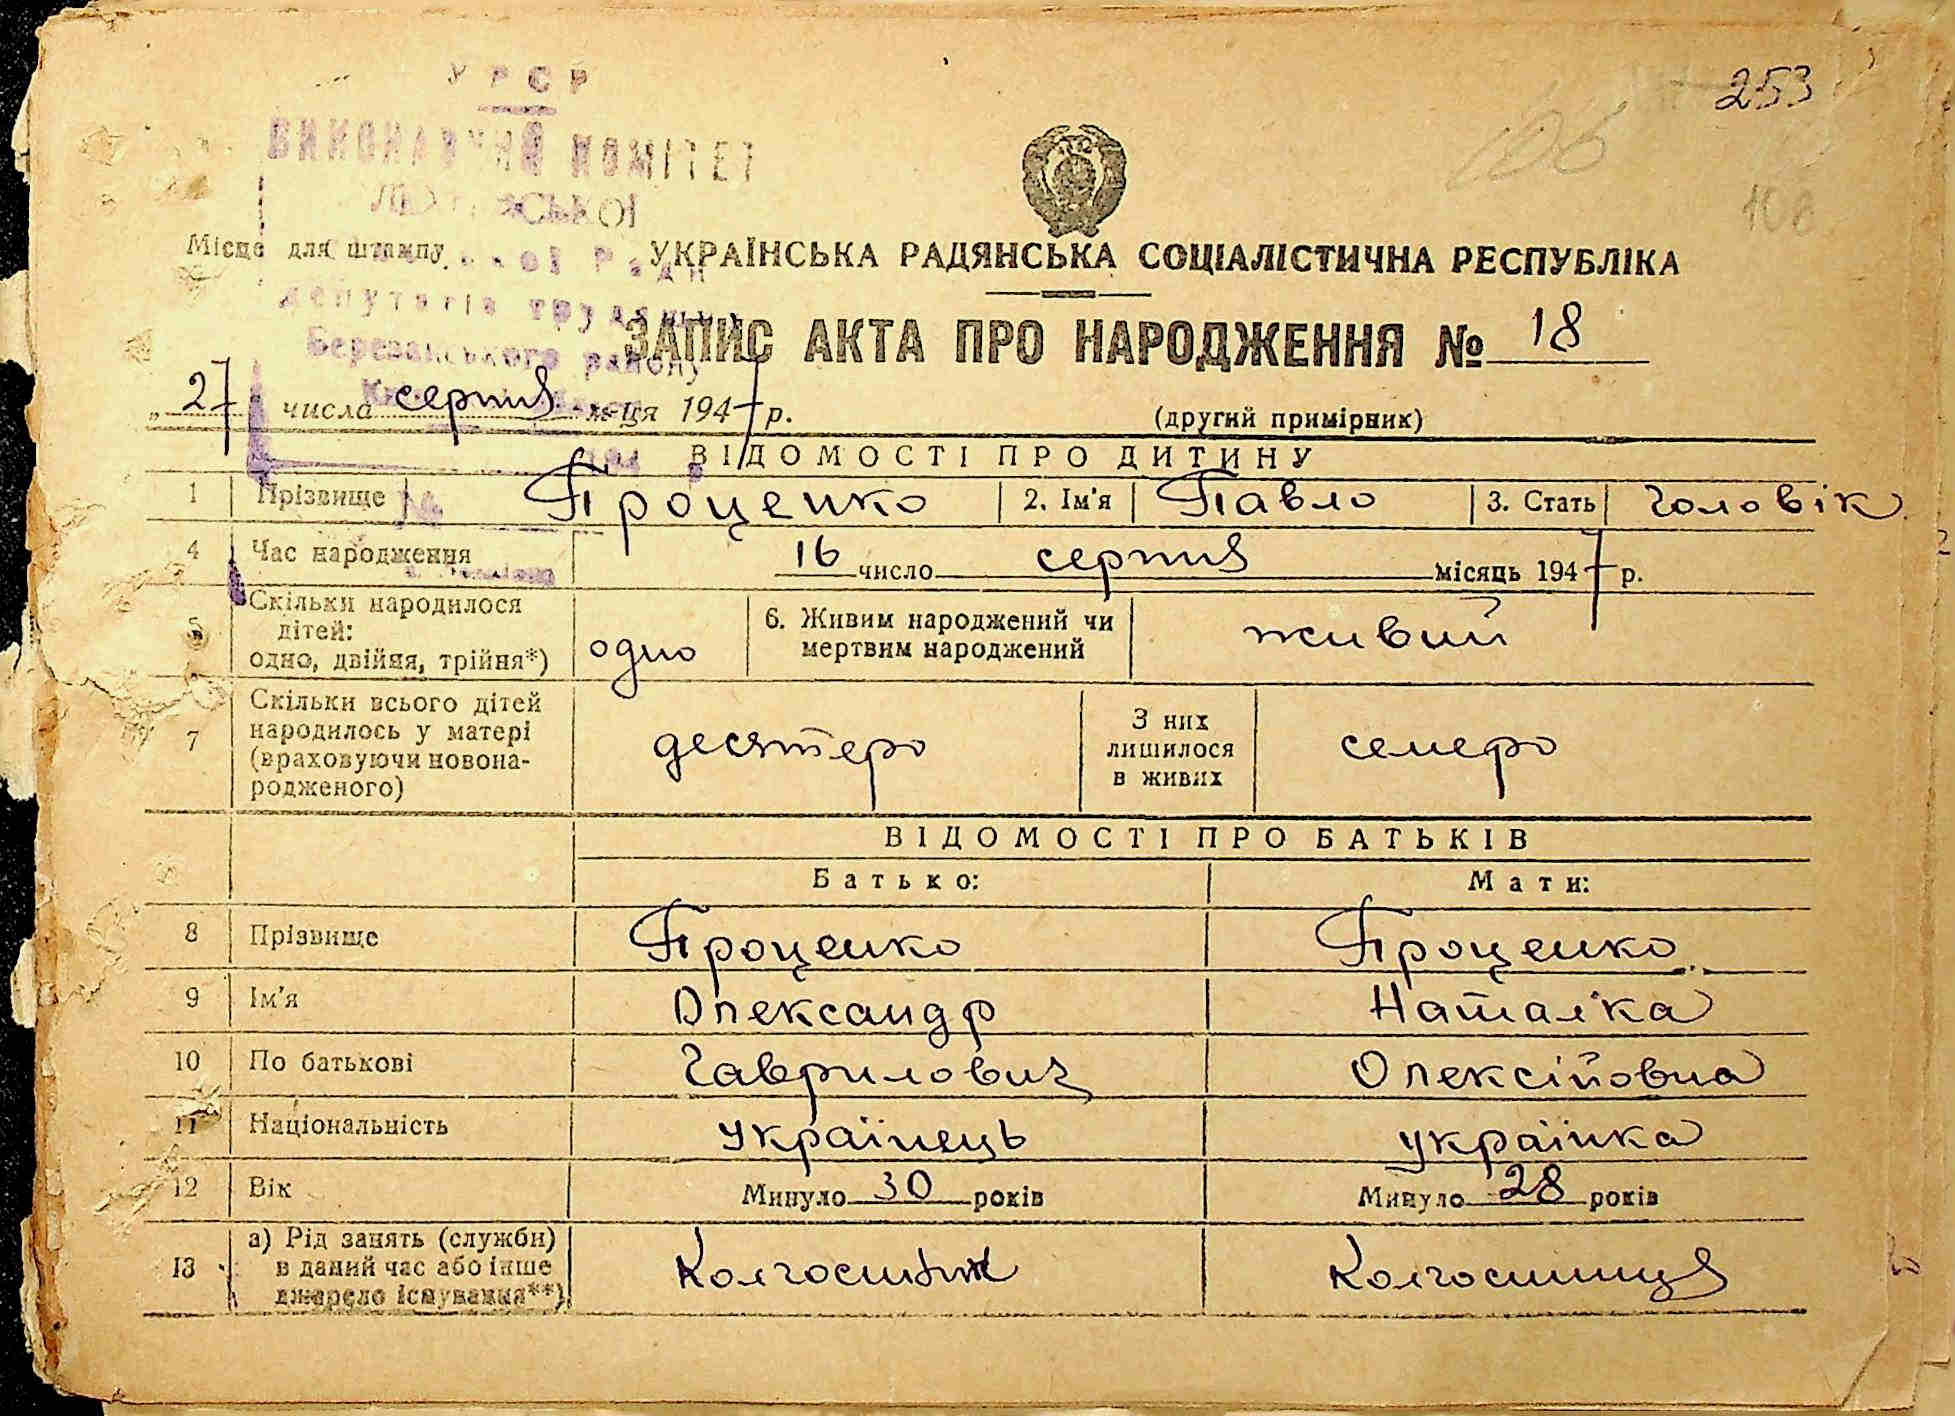 УРСР
253
ВИКОНАВЧИЙ КОМІТЕТ
106
106
Місце для штампу
УКРАЇНСЬКА РАДЯНСЬКА СОЦІАЛІСТИЧНА РЕСПУБЛІКА
депутатів трудящих
Березанського району
ЗАПИС АКТА ПРО НАРОДЖЕННЯ № 18
„27 числа серпня м-ця 1947 р. (другий примірник)
194
ВІДОМОСТІ ПРО ДИТИНУ
1 Прізвище Проценко 2. Ім'я Павло 3. Стать Чоловік
№
4 Час народження 16 число серпня місяць 1947 р.
5 Скільки народилося дітей: одно, двійня, трійня*) одно 6. Живим народжений чи мертвим народжений живий
7 Скільки всього дітей народилось у матері (враховуючи новонародженого) десятеро З них лишилося в живих семеро
ВІДОМОСТІ ПРО БАТЬКІВ
Батько: Мати:
8 Прізвище Проценко Проценко
9 Ім'я Олександр Наталка
10 По батькові Гаврилович Олексіївна
11 Національність українець українка
12 Вік Минуло 30 років Минуло 28 років
13 а) Рід занять (служби) в даний час або інше джерело існування**) Колгоспник Колгоспниця